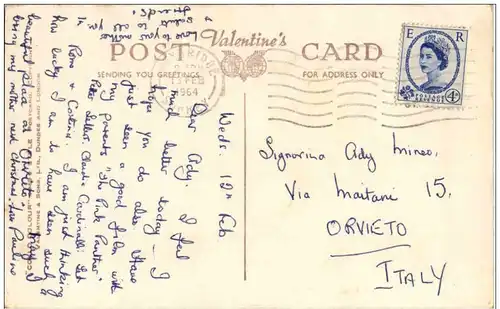 POST
Valentine's
CARD
SENDING YOU GREETINGS.
FOR ADDRESS ONLY
E R
POSTAGE REVENUE
4D
1964
Weds. 12th Feb
Dear Ady, I feel
much better today – I
hope you do also. Have
just seen a good film with
my parents "The Pink Panther"
Peter Sellers. Claudia Cardinale: Set
Rome & Cortina. I am just thinking
how lucky I am to have seen such a
beautiful place at Orvieto. May I
bring my mother next Christmas.
Love Pauline
love to your mother
Signorina Ady Mineo,
Via Maitani 15,
ORVIETO
ITALY
VALENTINE & SONS, LTD., DUNDEE AND LONDON